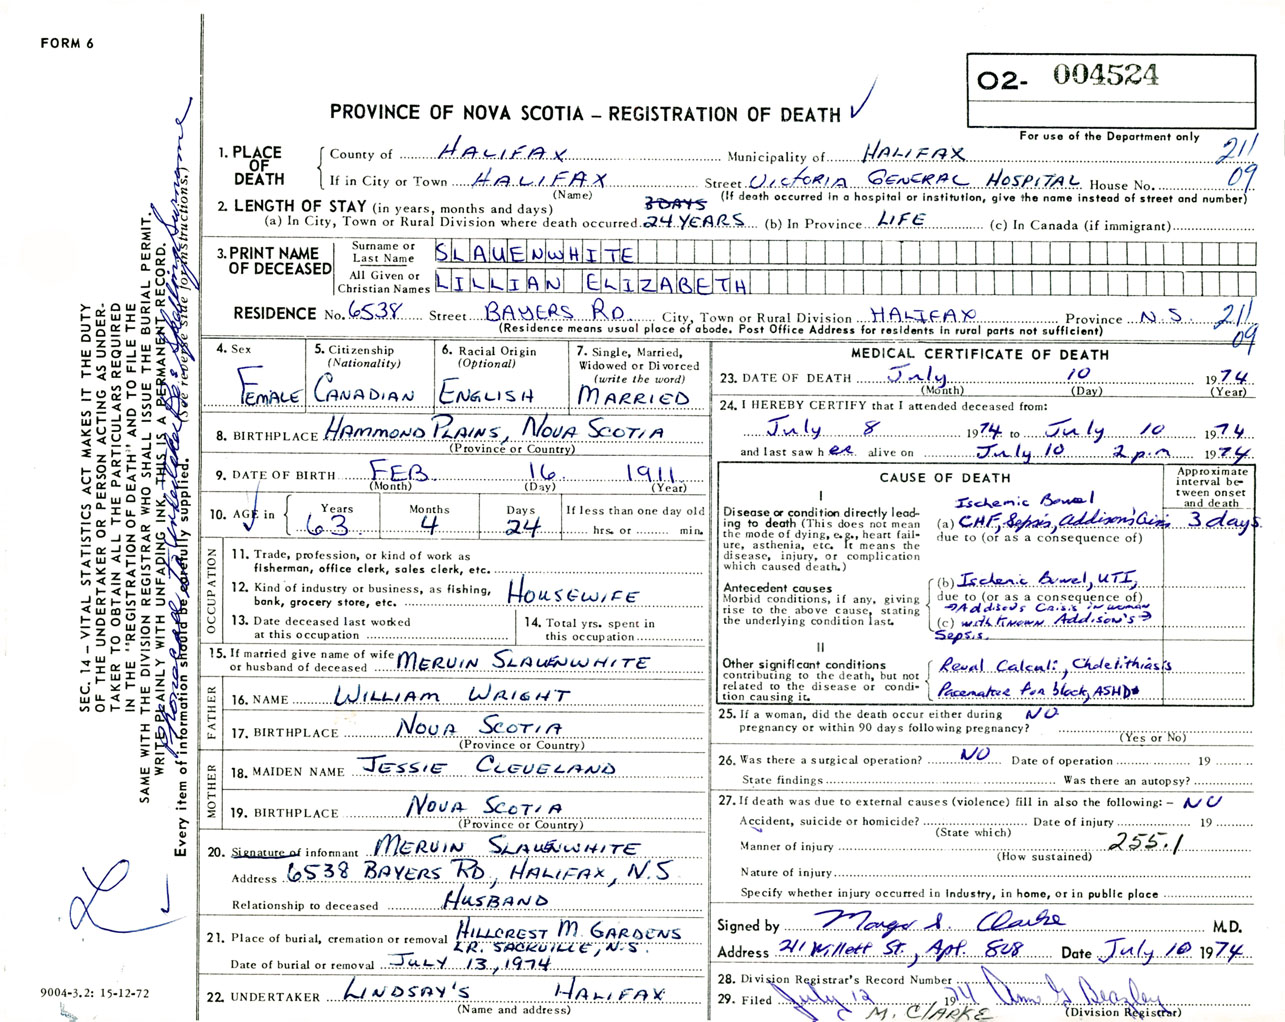 FORM 6
O2- 004524
PROVINCE OF NOVA SCOTIA – REGISTRATION OF DEATH ✓
For use of the Department only
SEC. 14 – VITAL STATISTICS ACT MAKES IT THE DUTY
OF THE UNDERTAKER OR PERSON ACTING AS UNDER-
TAKER TO OBTAIN ALL THE PARTICULARS REQUIRED
IN THE "REGISTRATION OF DEATH" AND TO FILE THE
SAME WITH THE DIVISION REGISTRAR WHO SHALL ISSUE THE BURIAL PERMIT.
WRITE PLAINLY WITH UNFADING INK. THIS IS A PERMANENT RECORD.
Every item of information should be carefully supplied. (See reverse side for instructions.)
1. PLACE OF DEATH
County of HALIFAX Municipality of HALIFAX 211
If in City or Town HALIFAX Street VICTORIA GENERAL HOSPITAL House No. 09
(Name) (If death occurred in a hospital or institution, give the name instead of street and number)
2. LENGTH OF STAY (in years, months and days) 3 DAYS
(a) In City, Town or Rural Division where death occurred 24 YEARS (b) In Province LIFE (c) In Canada (if immigrant)
3. PRINT NAME OF DECEASED
Surname or Last Name SLAUENWHITE
All Given or Christian Names LILLIAN ELIZABETH
RESIDENCE No. 6538 Street BAYERS RD City, Town or Rural Division HALIFAX Province N.S. 211
(Residence means usual place of abode. Post Office Address for residents in rural parts not sufficient) 09
4. Sex FEMALE
5. Citizenship (Nationality) CANADIAN
6. Racial Origin (Optional) ENGLISH
7. Single, Married, Widowed or Divorced (write the word) MARRIED
8. BIRTHPLACE HAMMOND PLAINS, NOVA SCOTIA
(Province or Country)
9. DATE OF BIRTH FEB 16 1911
(Month) (Day) (Year)
10. AGE in Years 63 Months 4 Days 24 If less than one day old
hrs. or min.
OCCUPATION
11. Trade, profession, or kind of work as
fisherman, office clerk, sales clerk, etc.
12. Kind of industry or business, as fishing,
bank, grocery store, etc. HOUSEWIFE
13. Date deceased last worked
at this occupation
14. Total yrs. spent in
this occupation
15. If married give name of wife
or husband of deceased MERVIN SLAUENWHITE
FATHER
16. NAME WILLIAM WRIGHT
17. BIRTHPLACE NOVA SCOTIA
(Province or Country)
MOTHER
18. MAIDEN NAME JESSIE CLEVELAND
19. BIRTHPLACE NOVA SCOTIA
(Province or Country)
20. Signature of informant MERVIN SLAUENWHITE
Address 6538 BAYERS RD., HALIFAX, N.S.
Relationship to deceased HUSBAND
21. Place of burial, cremation or removal HILLCREST M. GARDENS
LR. SACKVILLE, N.S.
Date of burial or removal JULY 13, 1974
22. UNDERTAKER LINDSAY'S HALIFAX
(Name and address)
9004-3.2: 15-12-72
MEDICAL CERTIFICATE OF DEATH
23. DATE OF DEATH July 10 1974
(Month) (Day) (Year)
24. I HEREBY CERTIFY that I attended deceased from:
July 8 1974 to July 10 1974
and last saw her alive on July 10 2 p.m 1974
CAUSE OF DEATH
Approximate interval between onset and death
I
Disease or condition directly lead-
ing to death (This does not mean
the mode of dying, e.g., heart fail-
ure, asthenia, etc. It means the
disease, injury, or complication
which caused death.)
Ischemic Bowel
(a) CHF, Sepsis, Addison's Crisis 3 days
due to (or as a consequence of)
Antecedent causes
Morbid conditions, if any, giving
rise to the above cause, stating
the underlying condition last.
(b) Ischemic Bowel, UTI,
due to (or as a consequence of)
→Addison's Crisis in woman
(c) with KNOWN Addison's→
Sepsis.
II
Other significant conditions
contributing to the death, but not
related to the disease or condi-
tion causing it.
Renal Calculi, Cholelithiasis
Pacemaker for block, ASHD
25. If a woman, did the death occur either during NO
pregnancy or within 90 days following pregnancy?
(Yes or No)
26. Was there a surgical operation? NO Date of operation 19
State findings Was there an autopsy?
27. If death was due to external causes (violence) fill in also the following: – NO
Accident, suicide or homicide? Date of injury 19
(State which)
Manner of injury 255.1
(How sustained)
Nature of injury
Specify whether injury occurred in Industry, in home, or in public place
Signed by Clarke M.D.
Address Apt. 808 Date July 10 1974
28. Division Registrar's Record Number
29. Filed July 12 1974 Ann G Beazley
M. CLARKE (Division Registrar)